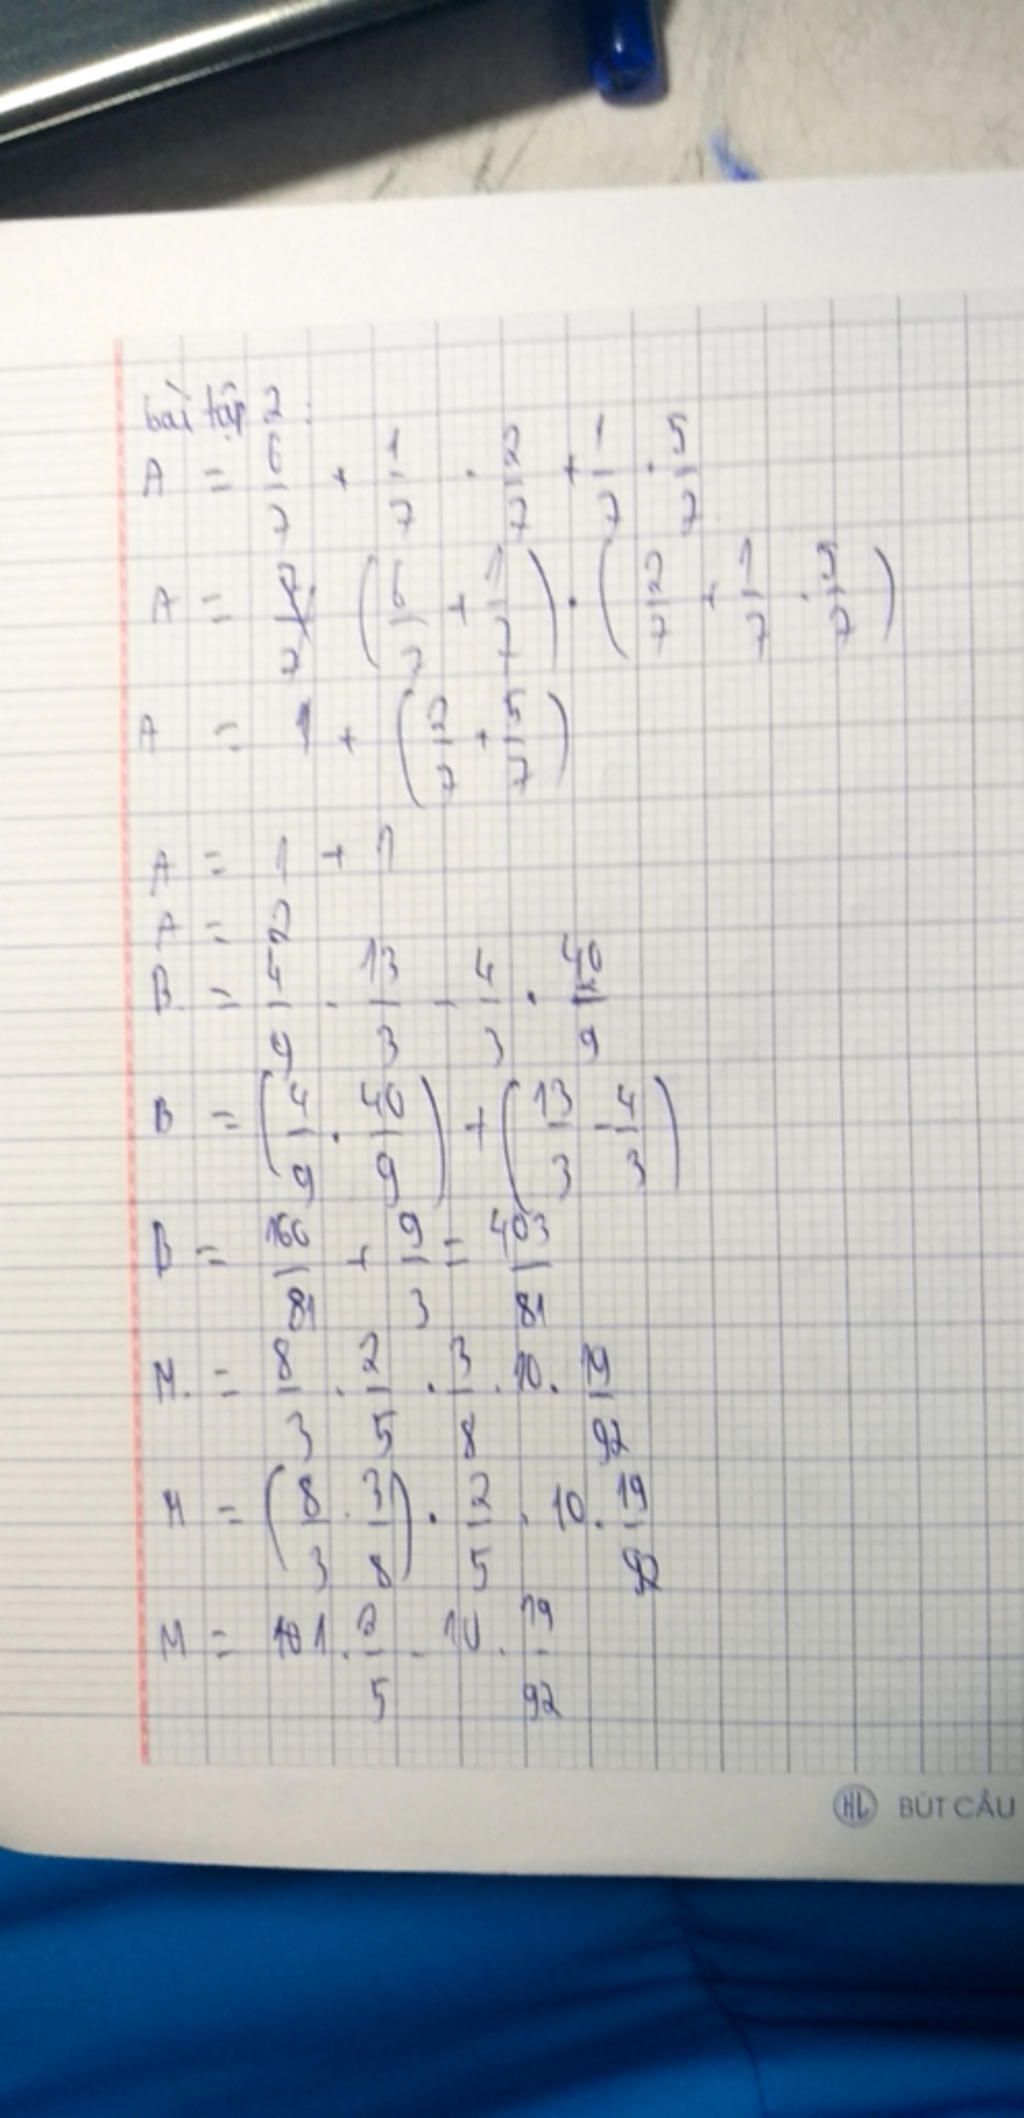 bài tập 2:
A = 6/7 + 1/7 . 2/7 + 1/7 . 5/7
A = (6/7 + 1/7) . (2/7 + 1/7 . 5/7)
A = 1 + (2/7 + 5/7)
A = 1 + 1
A = 2
B = 4/9 . 13/3 - 4/3 . 40/9
B = (4/9 . 40/9) + (13/3 - 4/3)
B = 160/81 + 9/3 = 403/81
M = 8/3 . 2/5 . 3/8 . 10 . 19/92
M = (8/3 . 3/8) . 2/5 . 10 . 19/92
M = 1 . 2/5 . 10 . 19/92
HL BÚT CÂU